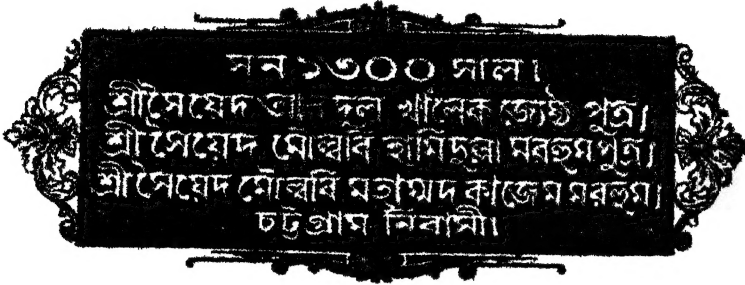 সন ১৩০০ সাল।
শ্রীসৈয়েদ আবদুল খালেক জ্যেষ্ঠ পুত্র।
শ্রীসৈয়েদ মৌল্ববি হামিদুল্লা মরহুম পুত্র।
শ্রীসৈয়েদ মৌল্ববি মহাম্মদ কাজেম মরহুম।
চট্টগ্রাম নিবাসী।